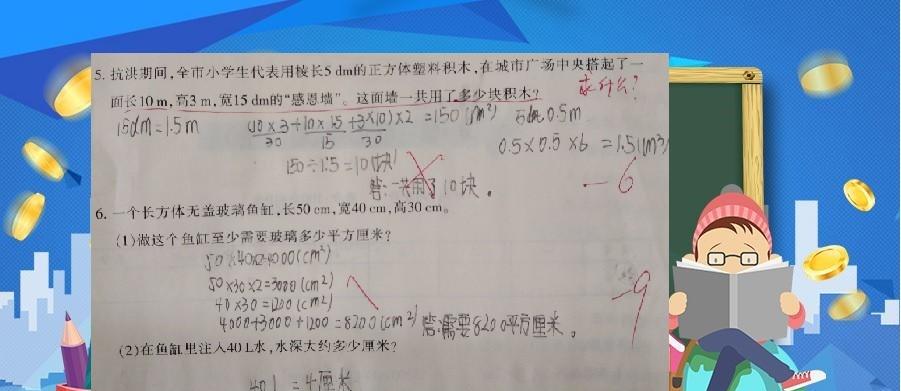 5. 抗洪期间,全市小学生代表用棱长5 dm的正方体塑料积木,在城市广场中央搭起了一
面长10 m,高3 m,宽15 dm的“感恩墙”。这面墙一共用了多少块积木?
求什么?
15dm=1.5m
(10×3+10×15+3×10)×2 =150(m²)
30 15 30
0.5m
0.5×0.5×6 =1.5(m²)
150÷1.5=10(块)
答:一共用了10块。
-6
6. 一个长方体无盖玻璃鱼缸,长50 cm,宽40 cm,高30 cm。
(1)做这个鱼缸至少需要玻璃多少平方厘米?
50×40×2=4000(cm²)
50×30×2=3000(cm²)
40×30=1200(cm²)
4000+3000+1200=8200(cm²) 答:需要8200平方厘米。
-9
(2)在鱼缸里注入40 L水,水深大约多少厘米?
40L=4厘米